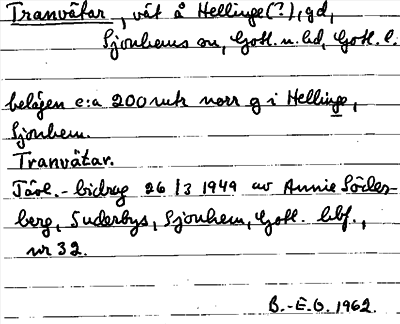 Tranvätar, vät å Hellinge(?), gd,
Sjonhems sn, Gotl. n. hd, Gotl. l.
belägen c:a 200 mtr norr g i Hellinge,
Sjonhem.
Tranvätar.
Tävl.-bidrag 26/3 1949 av Annie Söder-
berg, Suderbys, Sjonhem, Gotl. lbf.,
nr 32.
B.-E.O. 1962.